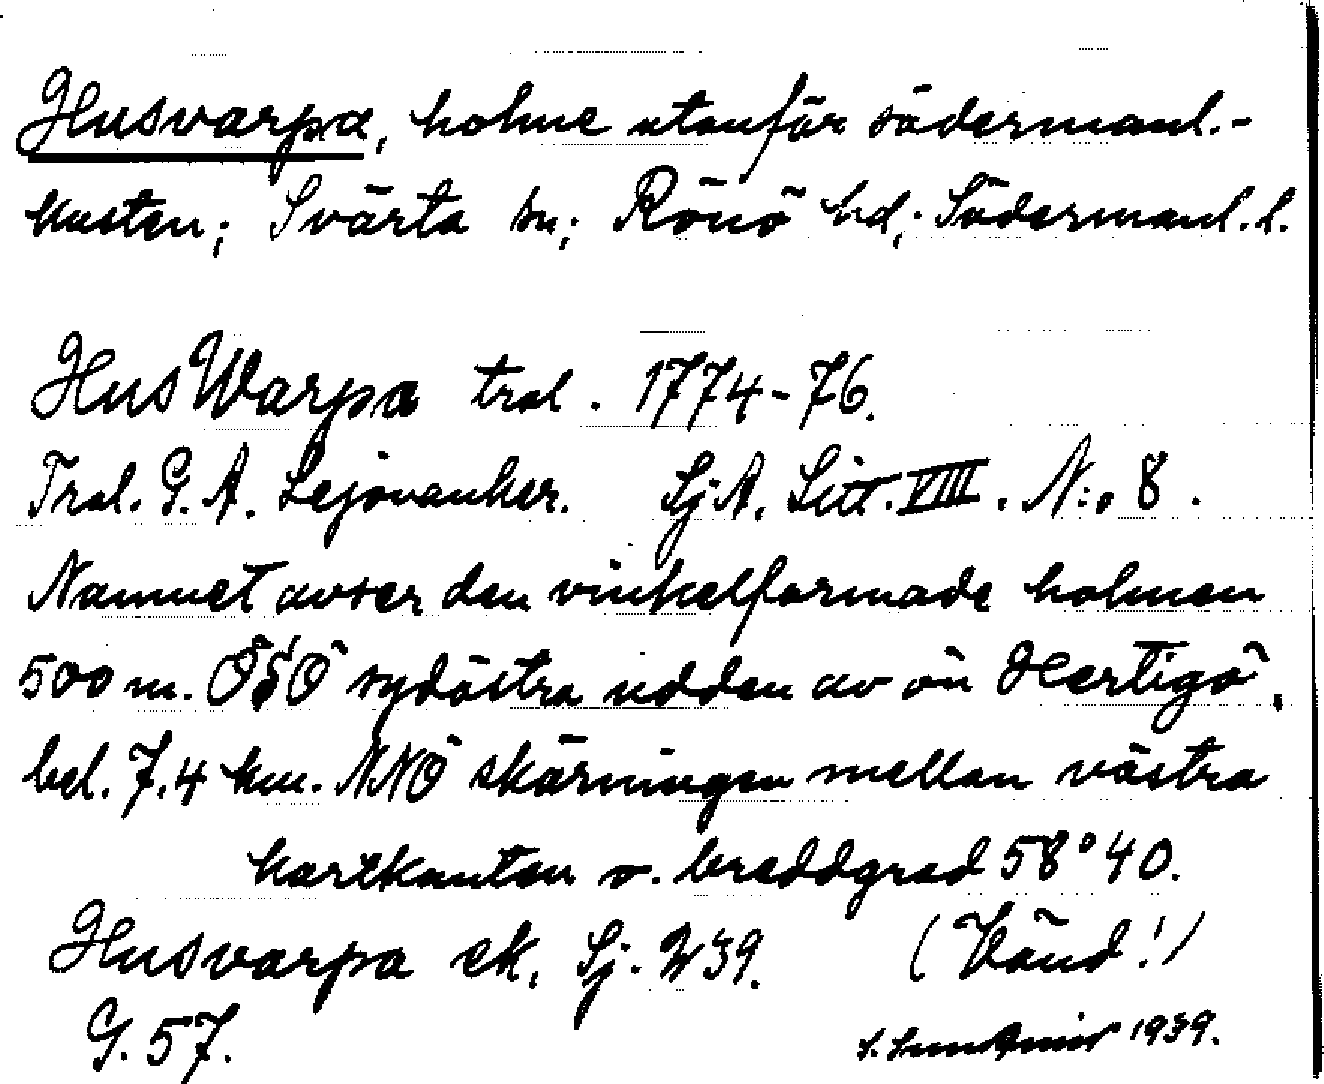 Husvarpa, holme utanför södermanl.-
kusten; Svärta sn; Rönö hd; Södermanl. l.
HusWarpa tral. 1774-76.
Tral. G. A. Lejonanker. Sj.A. Litt. VIII. N:o 8.
Namnet avser den vinkelformade holmen
500 m. OSO sydöstra udden av ön Hertigö,
bel. 7,4 km. NNO skärningen mellan västra
kartkanten o. breddgrad 58°40.
Husvarpa ek. Sj. 239. (Vänd!)
G. 57. 1939.